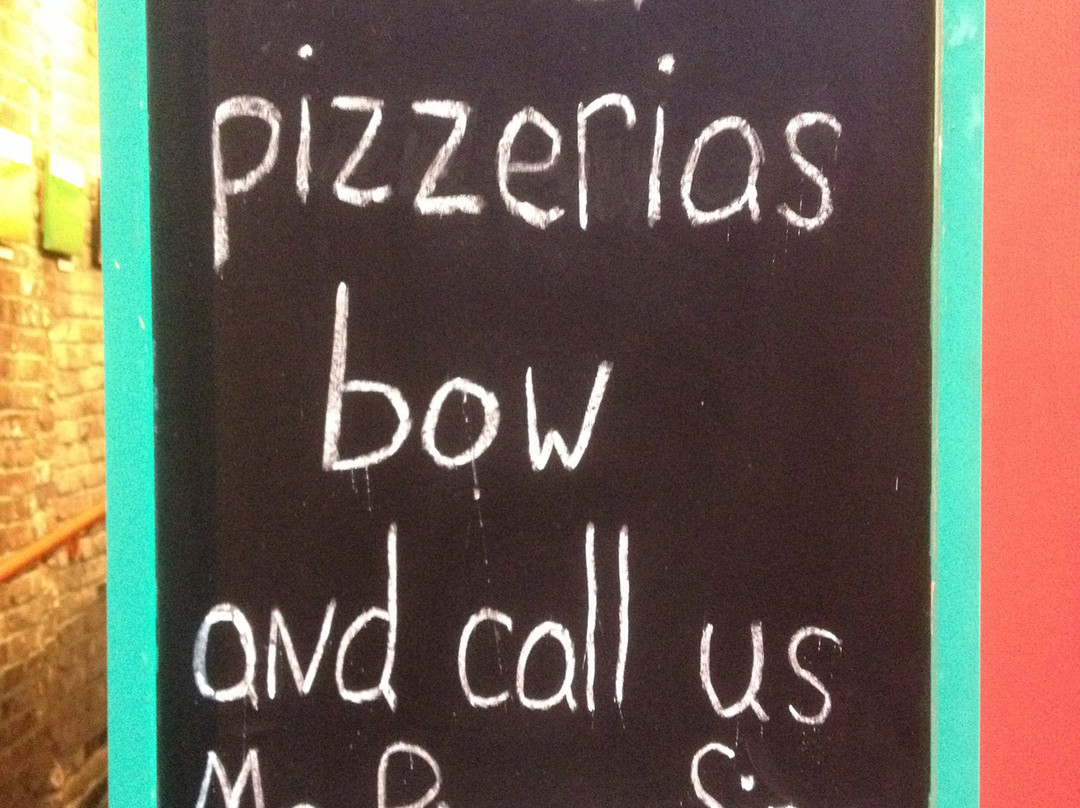 pizzerias
bow
and call us